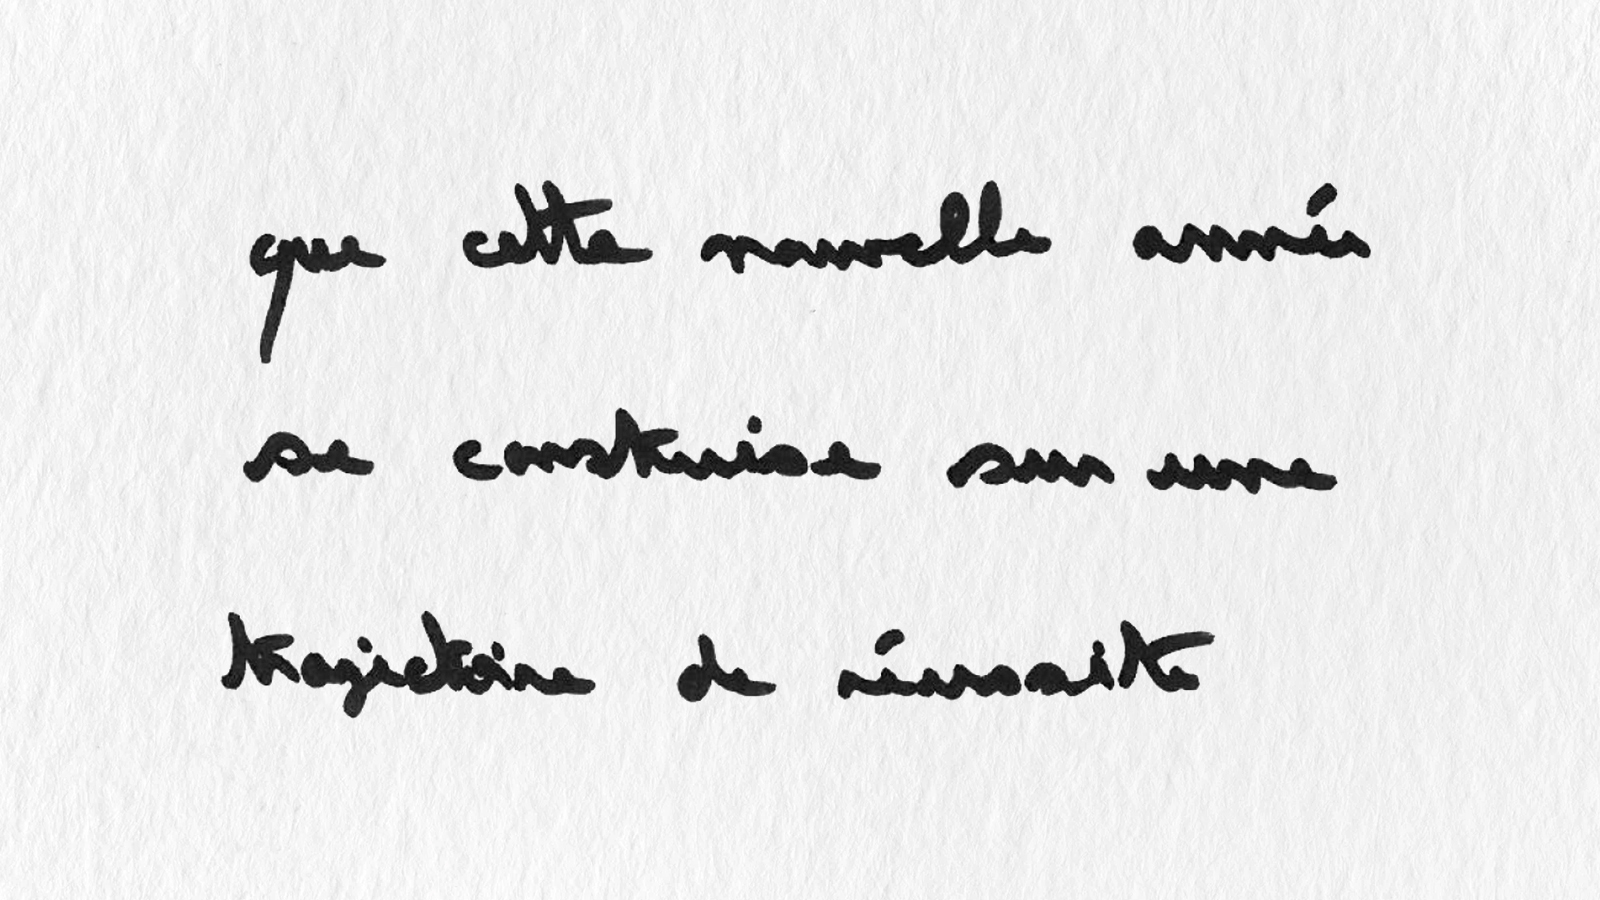 que cette nouvelle année
se construise sur une
trajectoire de réussite